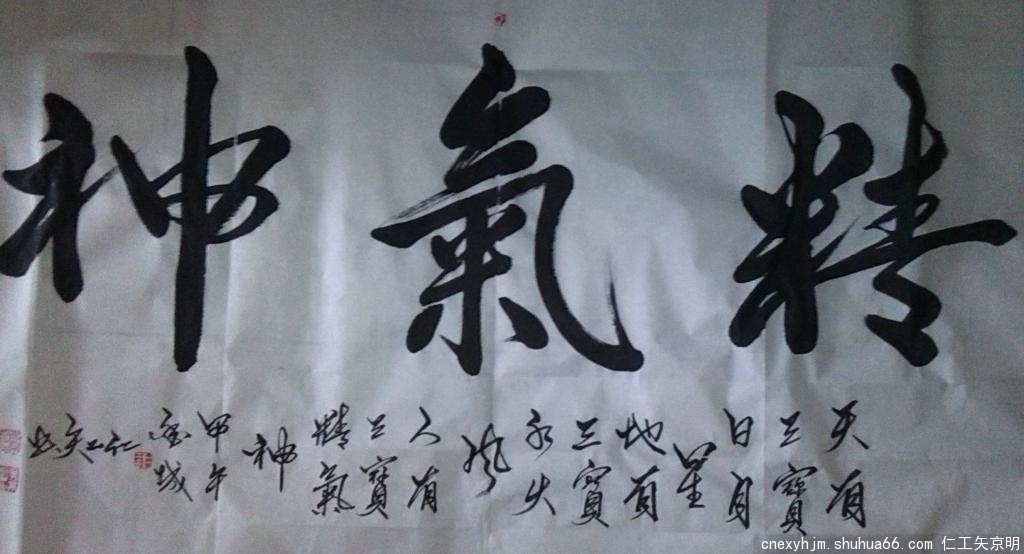 精氣神
天有
三寶
日月
星
地有
三寶
水火
風
人有
三寶
精氣
神
甲午
仁工矣
cnexyhjm.shuhua66.com 仁工矢京明